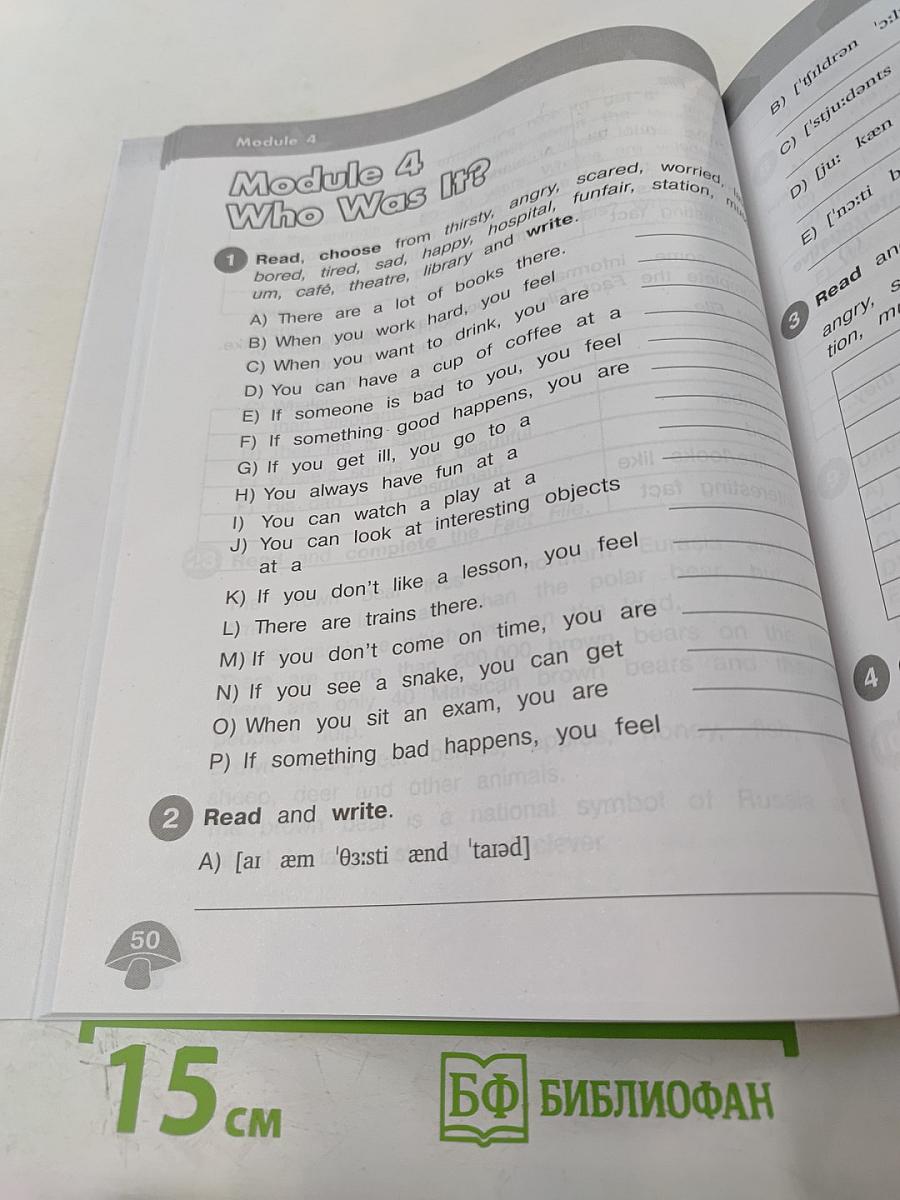 Module 4
Module 4
Who Was It?
1 Read, choose from thirsty, angry, scared, worried,
bored, tired, sad, happy, hospital, funfair, station,
um, café, theatre, library and write.
A) There are a lot of books there.
B) When you work hard, you feel
C) When you want to drink, you are
D) You can have a cup of coffee at a
E) If someone is bad to you, you feel
F) If something good happens, you are
G) If you get ill, you go to a
H) You always have fun at a
I) You can watch a play at a
J) You can look at interesting objects
at a
K) If you don't like a lesson, you feel
L) There are trains there.
M) If you don't come on time, you are
N) If you see a snake, you can get
O) When you sit an exam, you are
P) If something bad happens, you feel
2 Read and write.
A) [aɪ æm ˈθɜːsti ænd ˈtaɪəd]
50
B) [ˈtʃɪldrən
C) [ˈstjuːdənts
D) [juː kæn
E) [ˈnɔːti
3 Read
angry,
tion,
4
15 см
БФ БИБЛИОФАН